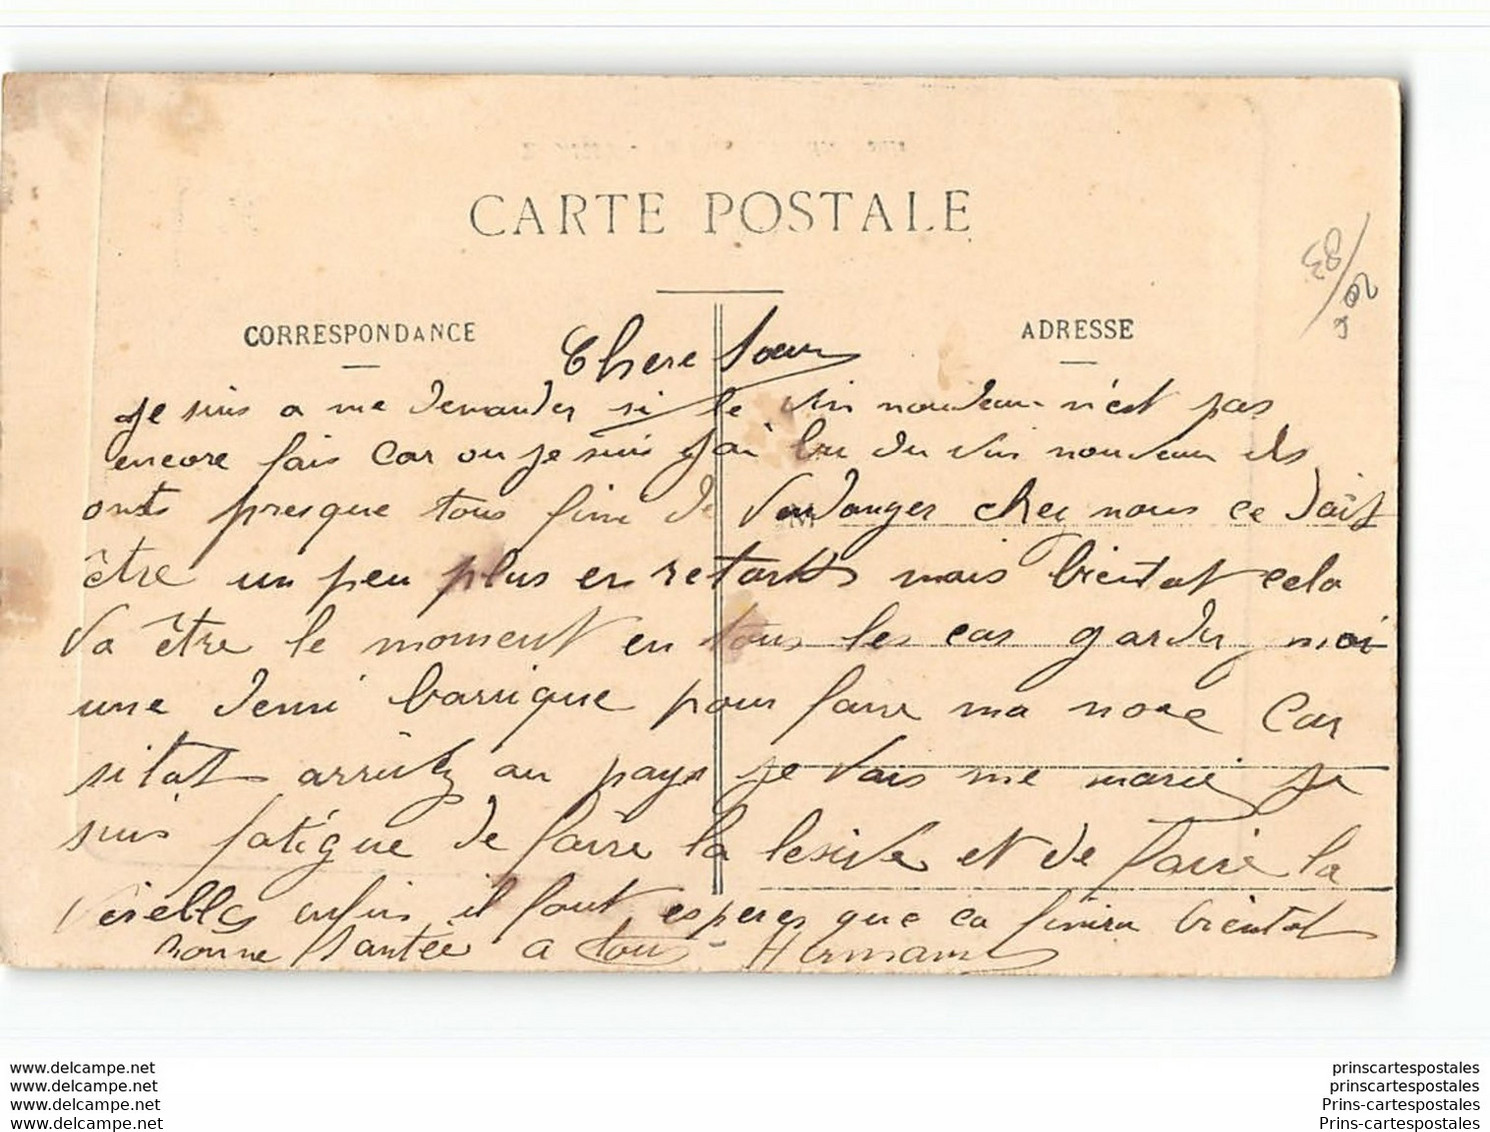 CARTE POSTALE
83
CORRESPONDANCE
ADRESSE
Chere Soeur
je suis a me demander si le vin nouveau n'est pas
encore fais car ou je suis j'ai bu du vin nouveau ils
onts presque tous fini de Vendanger chez nous ce doit
être un peu plus en retards mais bientot cela
Va être le moment en tous les cas garder moi
une demi barrique pour faire ma noce Car
sitot arrivez au pays je Vais me marié je
suis fatigue de faire la lesive et de faire la
Veselles enfin il faut esperes que ca finira bientot
Bonne Santée a tous - Hermann
www.delcampe.net
www.delcampe.net
www.delcampe.net
www.delcampe.net
prinscartespostales
prinscartespostales
Prins-cartespostales
Prins-cartespostales